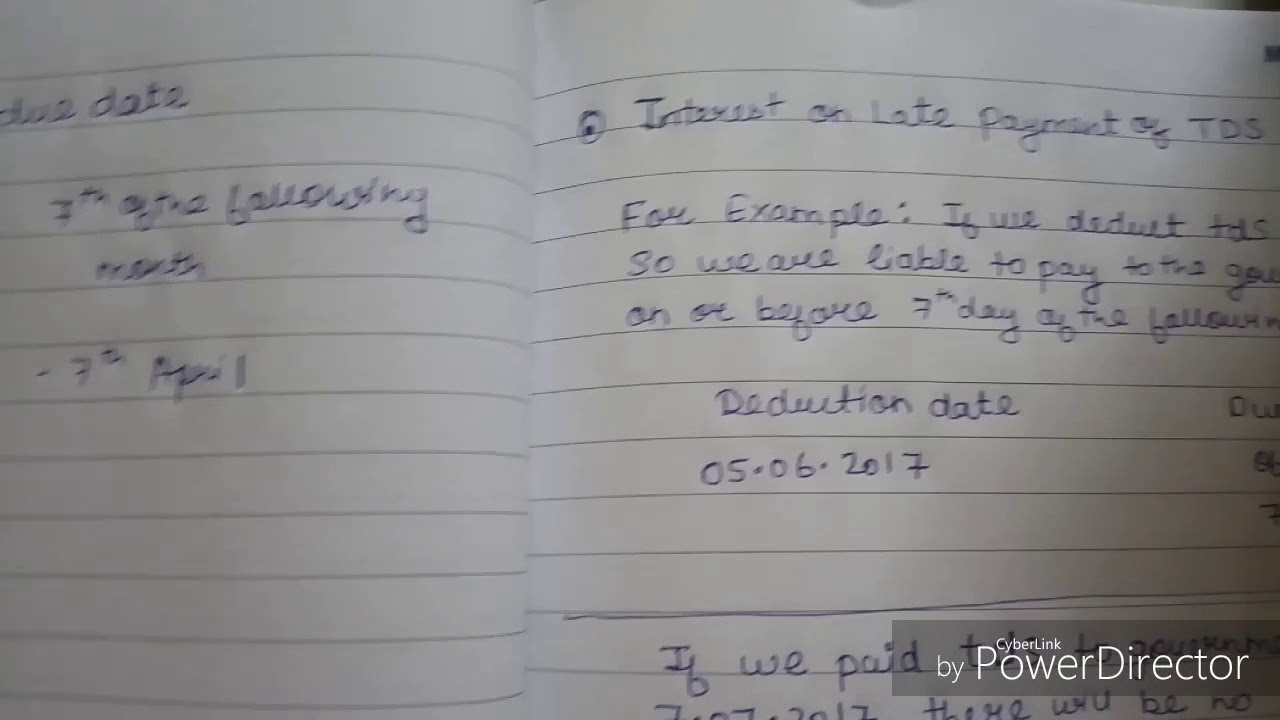 due date
7th of the following
month
- 7th April
Interest on Late Payment of TDS
For Example: If we deduct tds
So we are liable to pay to the
on or before 7th day of the
Deduction date
05.06.2017
If we paid tds to
7.07.2017 there will be no
CyberLink
by PowerDirector